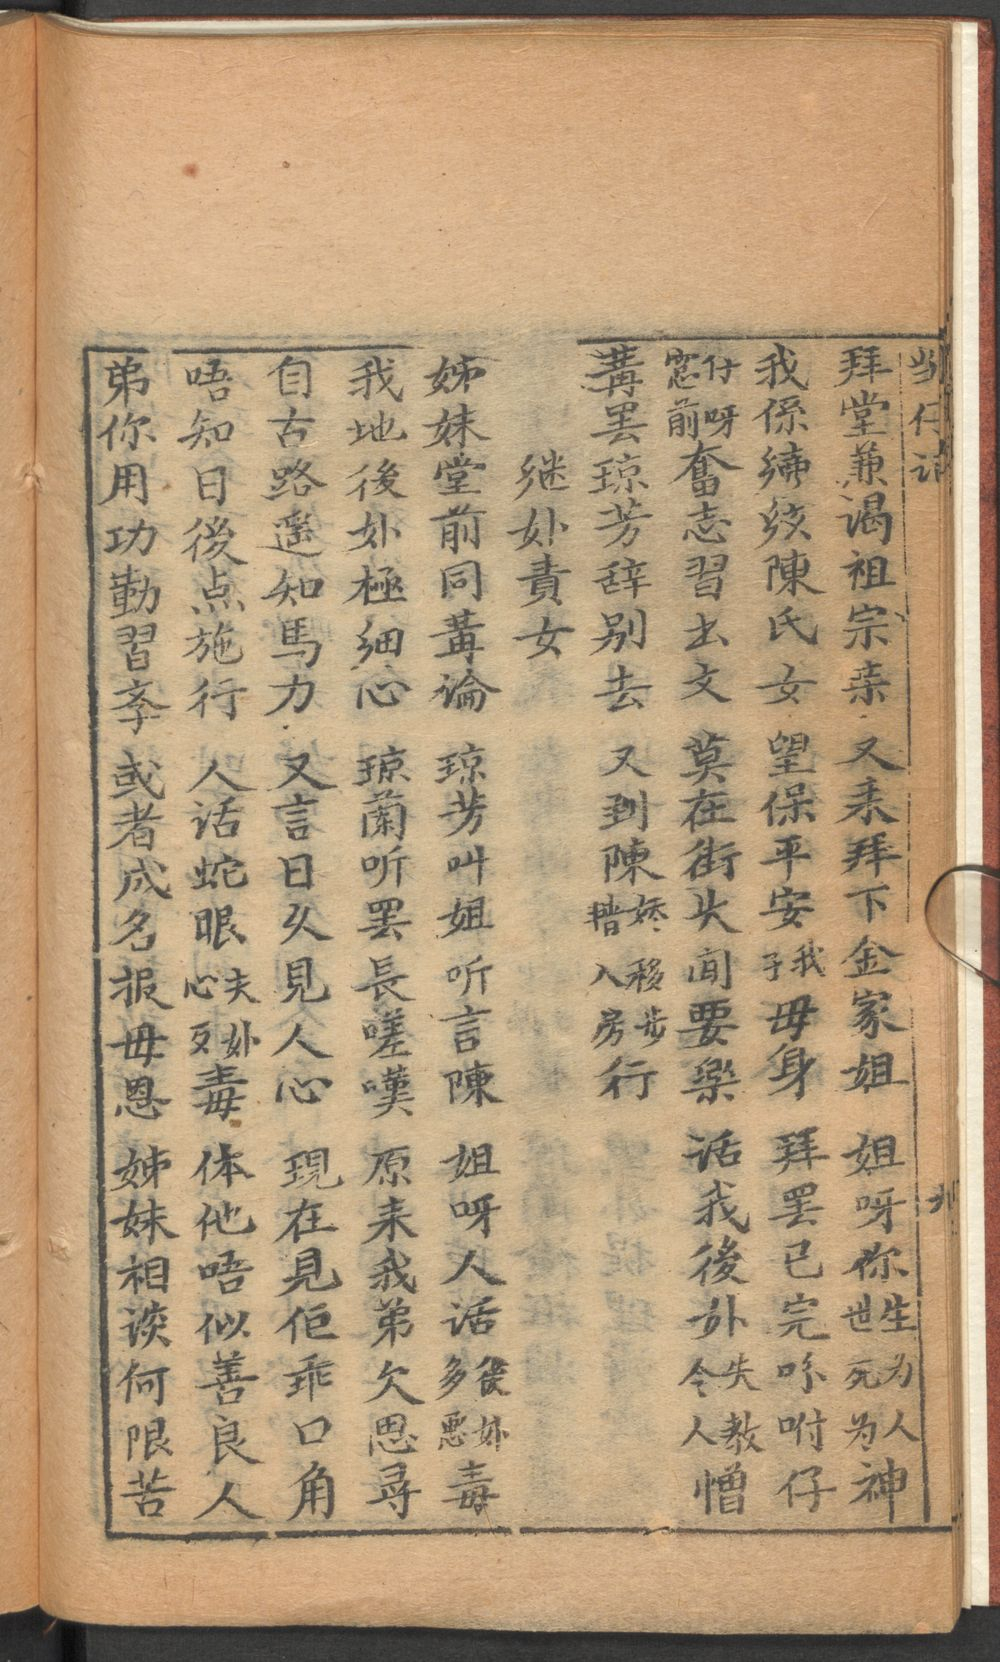 当仔記
拜堂兼谒祖宗亲 又来拜下金家姐 姐呀你生世为死人为神
我係 陳氏女 望保平安我子母身 拜罢已完吩咐仔
仔呀窓前奮志習出文 莫在街头闻要樂 话我後外失教令人憎
講罢琼芳辞别去 又到陳 移步入房行
继外責女
姊妹堂前同講论 琼芳叫姐听言陳 姐呀人话後外多恶毒
我地後外極细心 琼蘭听罢長嗟嘆 原来我弟欠恩尋
自古路遥知馬力 又言日久見人心 現在見佢乖口角
唔知日後点施行 人话蛇眼夫外心歹毒 体他唔似善良人
弟你用功勤習孝 或者成名报母恩 姊妹相谈何限苦